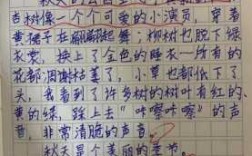 杏树像一个个可爱的小演员,穿着
黄裙子在翩翩起舞;柳树也脱下绿
衣裳,换上了金色的睡衣…所有的
花都凋谢枯萎了,小草也都低下了
头,我看到了许多树的叶有红的、
黄的绿,踩上去“咔嚓咔嚓”的声
音,非常清脆的声音。
秋天是个美丽的季节。